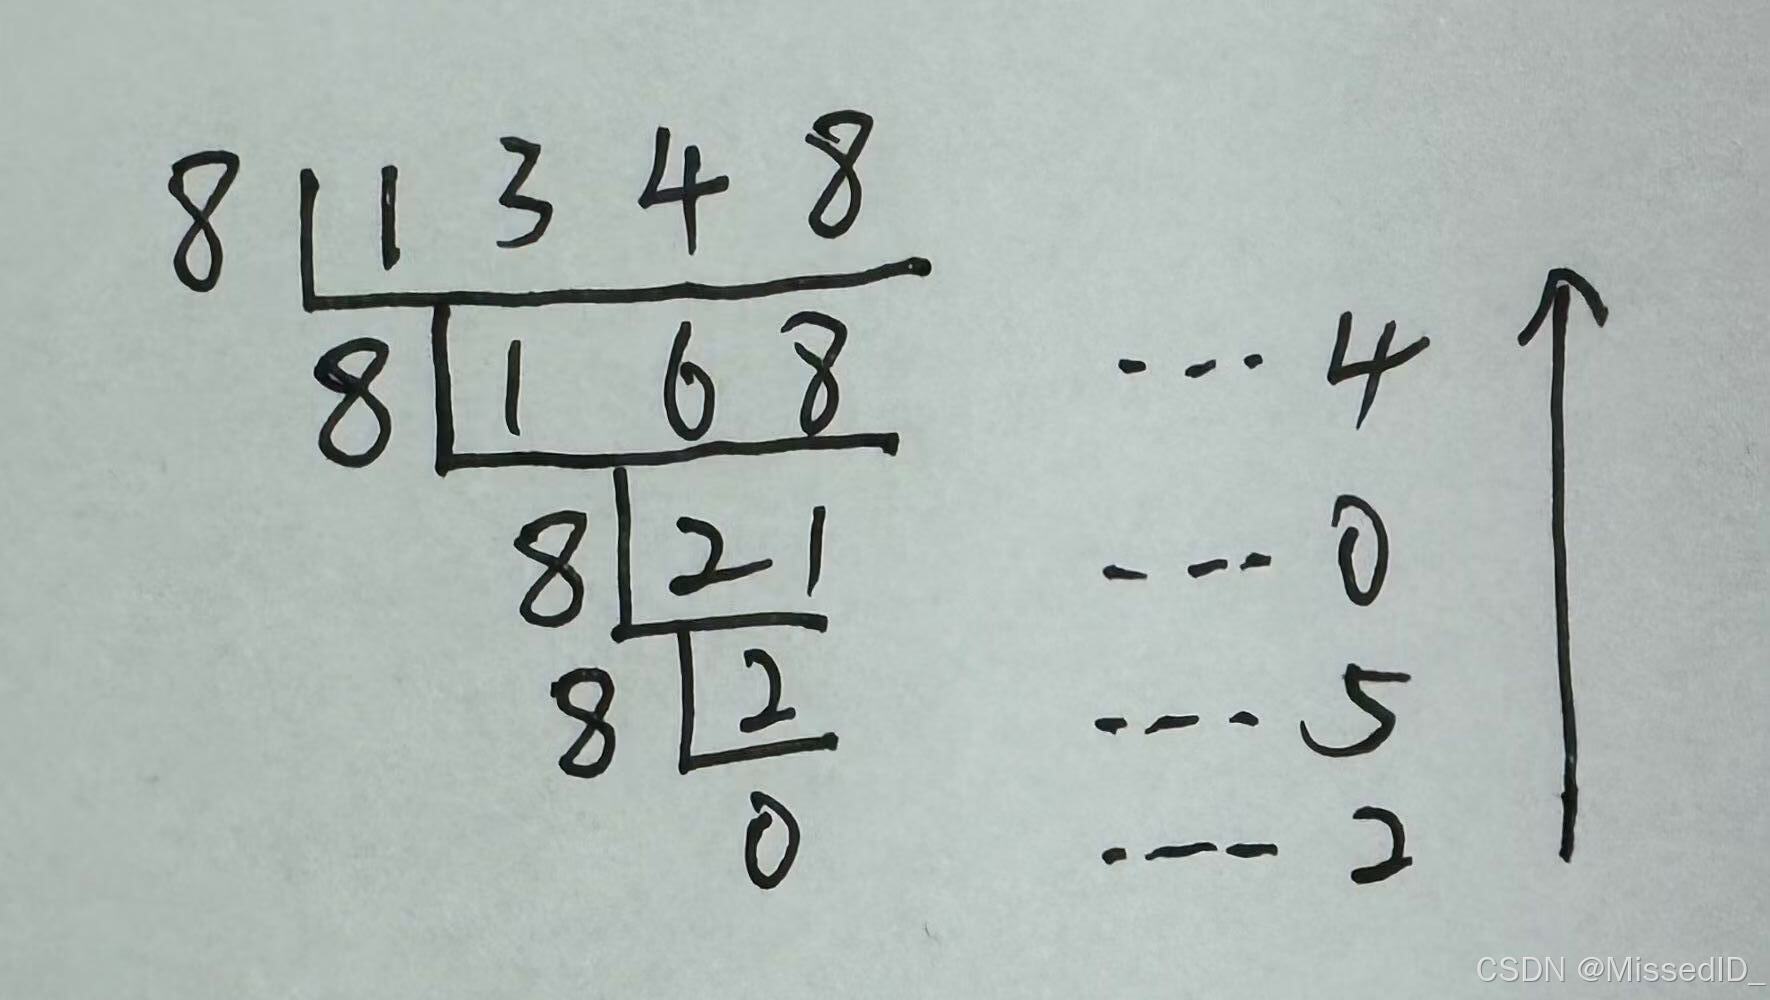 8 1 3 4 8
8 1 6 8 --- 4
8 2 1 --- 0
8 2 --- 5
0 --- 2
CSDN @MissedID_